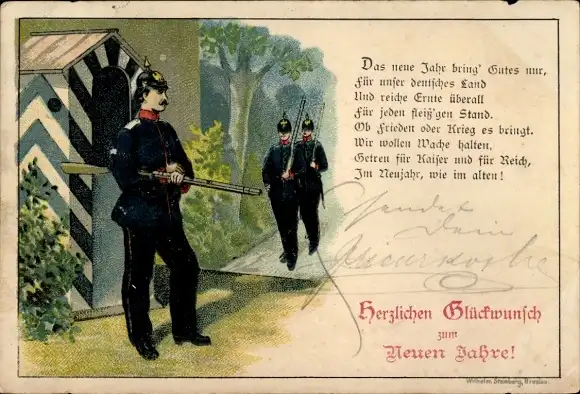 Das neue Jahr bring' Gutes nur,
Für unser deutsches Land
Und reiche Ernte überall
Für jeden fleiß'gen Stand.
Ob Frieden oder Krieg es bringt.
Wir wollen Wache halten,
Getreu für Kaiser und für Reich,
Im Neujahr, wie im alten!
sendet
Dein
Herzlichen Glückwunsch
zum
Neuen Jahre!
Wilhelm Steinberg, Breslau.